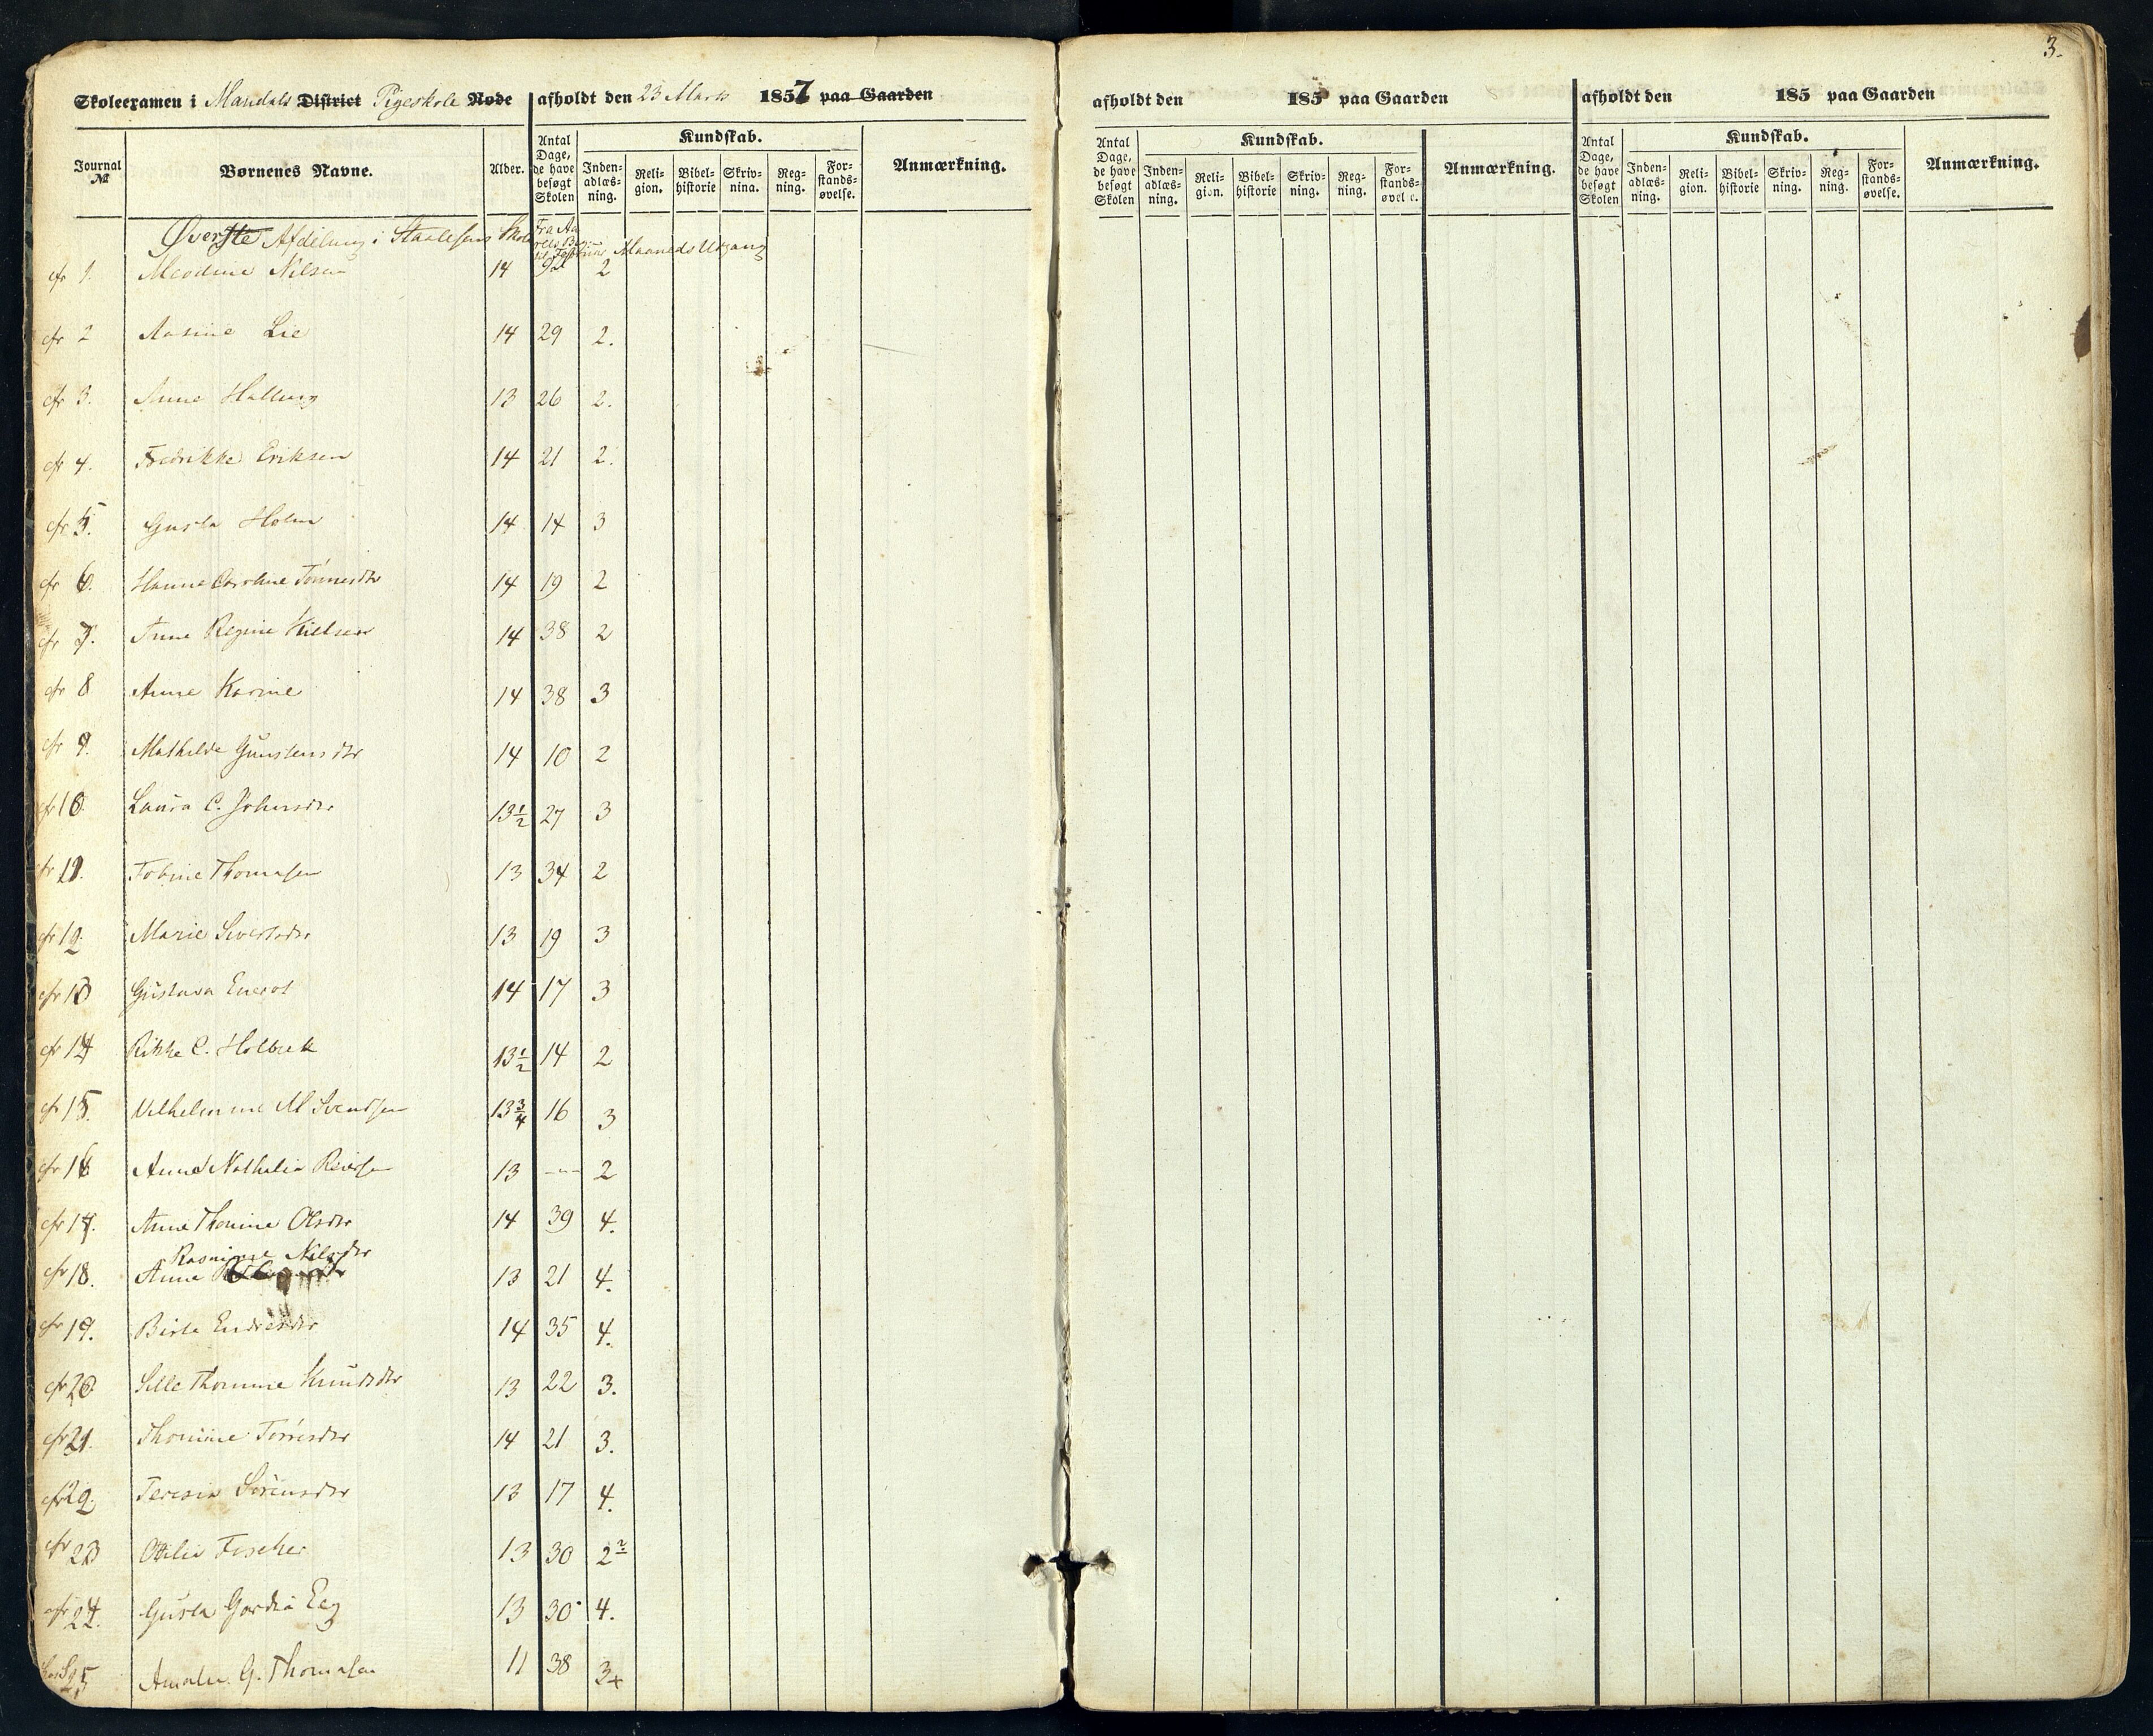 3.
Skoleexamen i Mandals District Pigeskole Rode afholdt den 23 Marts 1857 paa Gaarden
Journal № Børnenes Navne. Alder. Antal Dage, de have besøgt Skolen Kundskab. Inden- adlæs- ning. Reli- gion. Bibel- historie Skriv- nina. Reg- ning. For- stands- øvelse. Anmærkning.
Øverste Afdeling i Staalesens Skole Fra Aa til Februar Maaneds Udgang
cfr 1. Nilsen 14 2
cfr 2 Rasine Lie 14 29 2.
cfr 3. Anne 13 26 2.
cfr 4. Fredrikke Eriksen 14 21 2.
cfr 5. Gusta Holm 14 14 3
cfr 6. Hanne Caroline Tønnesdtr 14 19 2
cfr 7. Anne Regine Kielsen 14 38 2
cfr 8 Anne Karine 14 38 3
cfr 9. Mathilde Gunstensdtr 14 10 2
cfr 10 Laura C. Johnsdtr 13½ 27 3
cfr 11. Tobine Thomasen 13 34 2
cfr 12. Marie Sivertsdtr 13 19 3
cfr 13 Gustava 14 17 3
cfr 14 Rikke C. Holbek 13½ 14 2
cfr 15. Vilhelmine M Svendsen 13¾ 16 3
cfr 16 Anne Nathalia Reiersen 13 -"- 2
cfr 17. Anne Thomine Olsdtr 14 39 4.
Rasmine Nilsdtr
cfr 18. Anne 13 21 4.
cfr 19. Birte Endresdtr 14 35 4.
cfr 20. Sille Thomine Knudsdtr 13 22 3.
cfr 21. Thomine Tørresdtr 14 21 3.
cfr 22. Teresia Sørensdtr 13 17 4.
cfr 23 Ottilie Fischer 13 30 2
cfr 24. Gusta Gordia Eeg 13 30 4.
25 Amalie G. Thomasen 11 38 3+
afholdt den 185 paa Gaarden
Antal Dage, de have besøgt Skolen Kundskab. Inden- adlæs- ning. Reli- gion. Bibel- historie Skriv- ning. Reg- ning. For- stands- øvel e. Anmærkning.
afholdt den 185 paa Gaarden
Antal Dage, de have besøgt Skolen Kundskab. Inden- adlæs- ning. Reli- gion. Bibel- historie Skriv- ning. Reg- ning. For- stands- øvelse. Anmærkning.